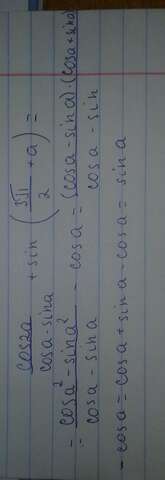 cos2a / cosa - sina + sin (3π/2 + a) =
= cosa² - sina² / cosa - sina - cosa = (cosa - sina) · (cosa + sina) / cosa - sin
- cosa = cosa + sina - cosa = sina